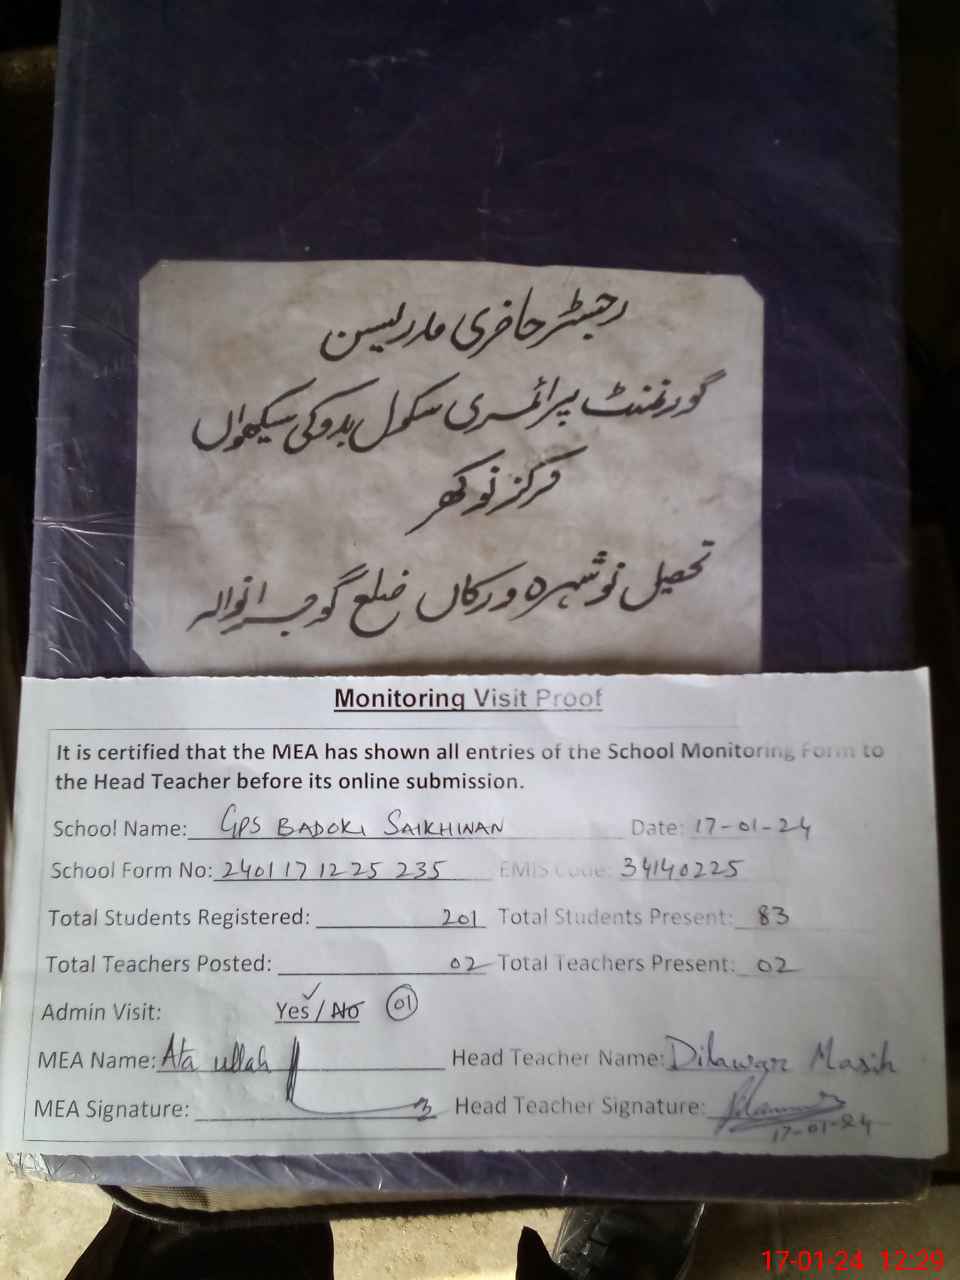 رجسٹر حاضری مدرسین
گورنمنٹ پرائمری سکول بدوکی سیکھواں
مرکز نوکھر
تحصیل نوشہرہ ورکاں ضلع گوجرانوالہ
Monitoring Visit Proof
It is certified that the MEA has shown all entries of the School Monitoring Form to
the Head Teacher before its online submission.
School Name: GPS BADOKI SAIKHWAN Date: 17-01-24
School Form No: 2401171225235 EMIS Code: 34140225
Total Students Registered: 201 Total Students Present: 83
Total Teachers Posted: 02 Total Teachers Present: 02
Admin Visit: Yes / No 01
MEA Name: Ata ullah Head Teacher Name: Dilawar Masih
MEA Signature: Head Teacher Signature:
17-01-24
17-01-24 12:29